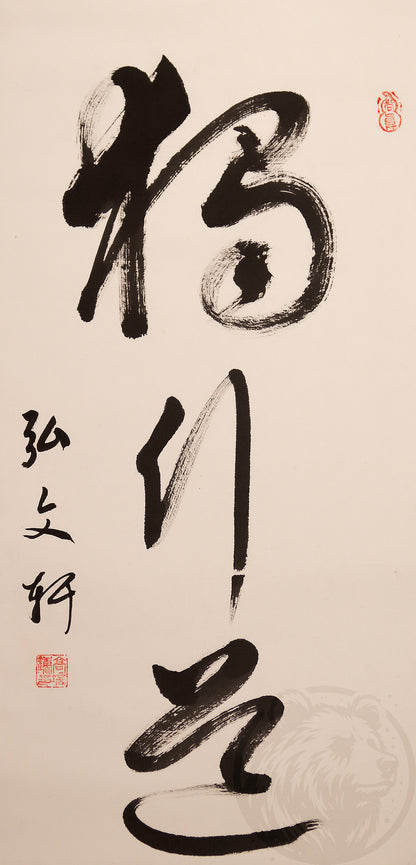 獨行道
弘文軒